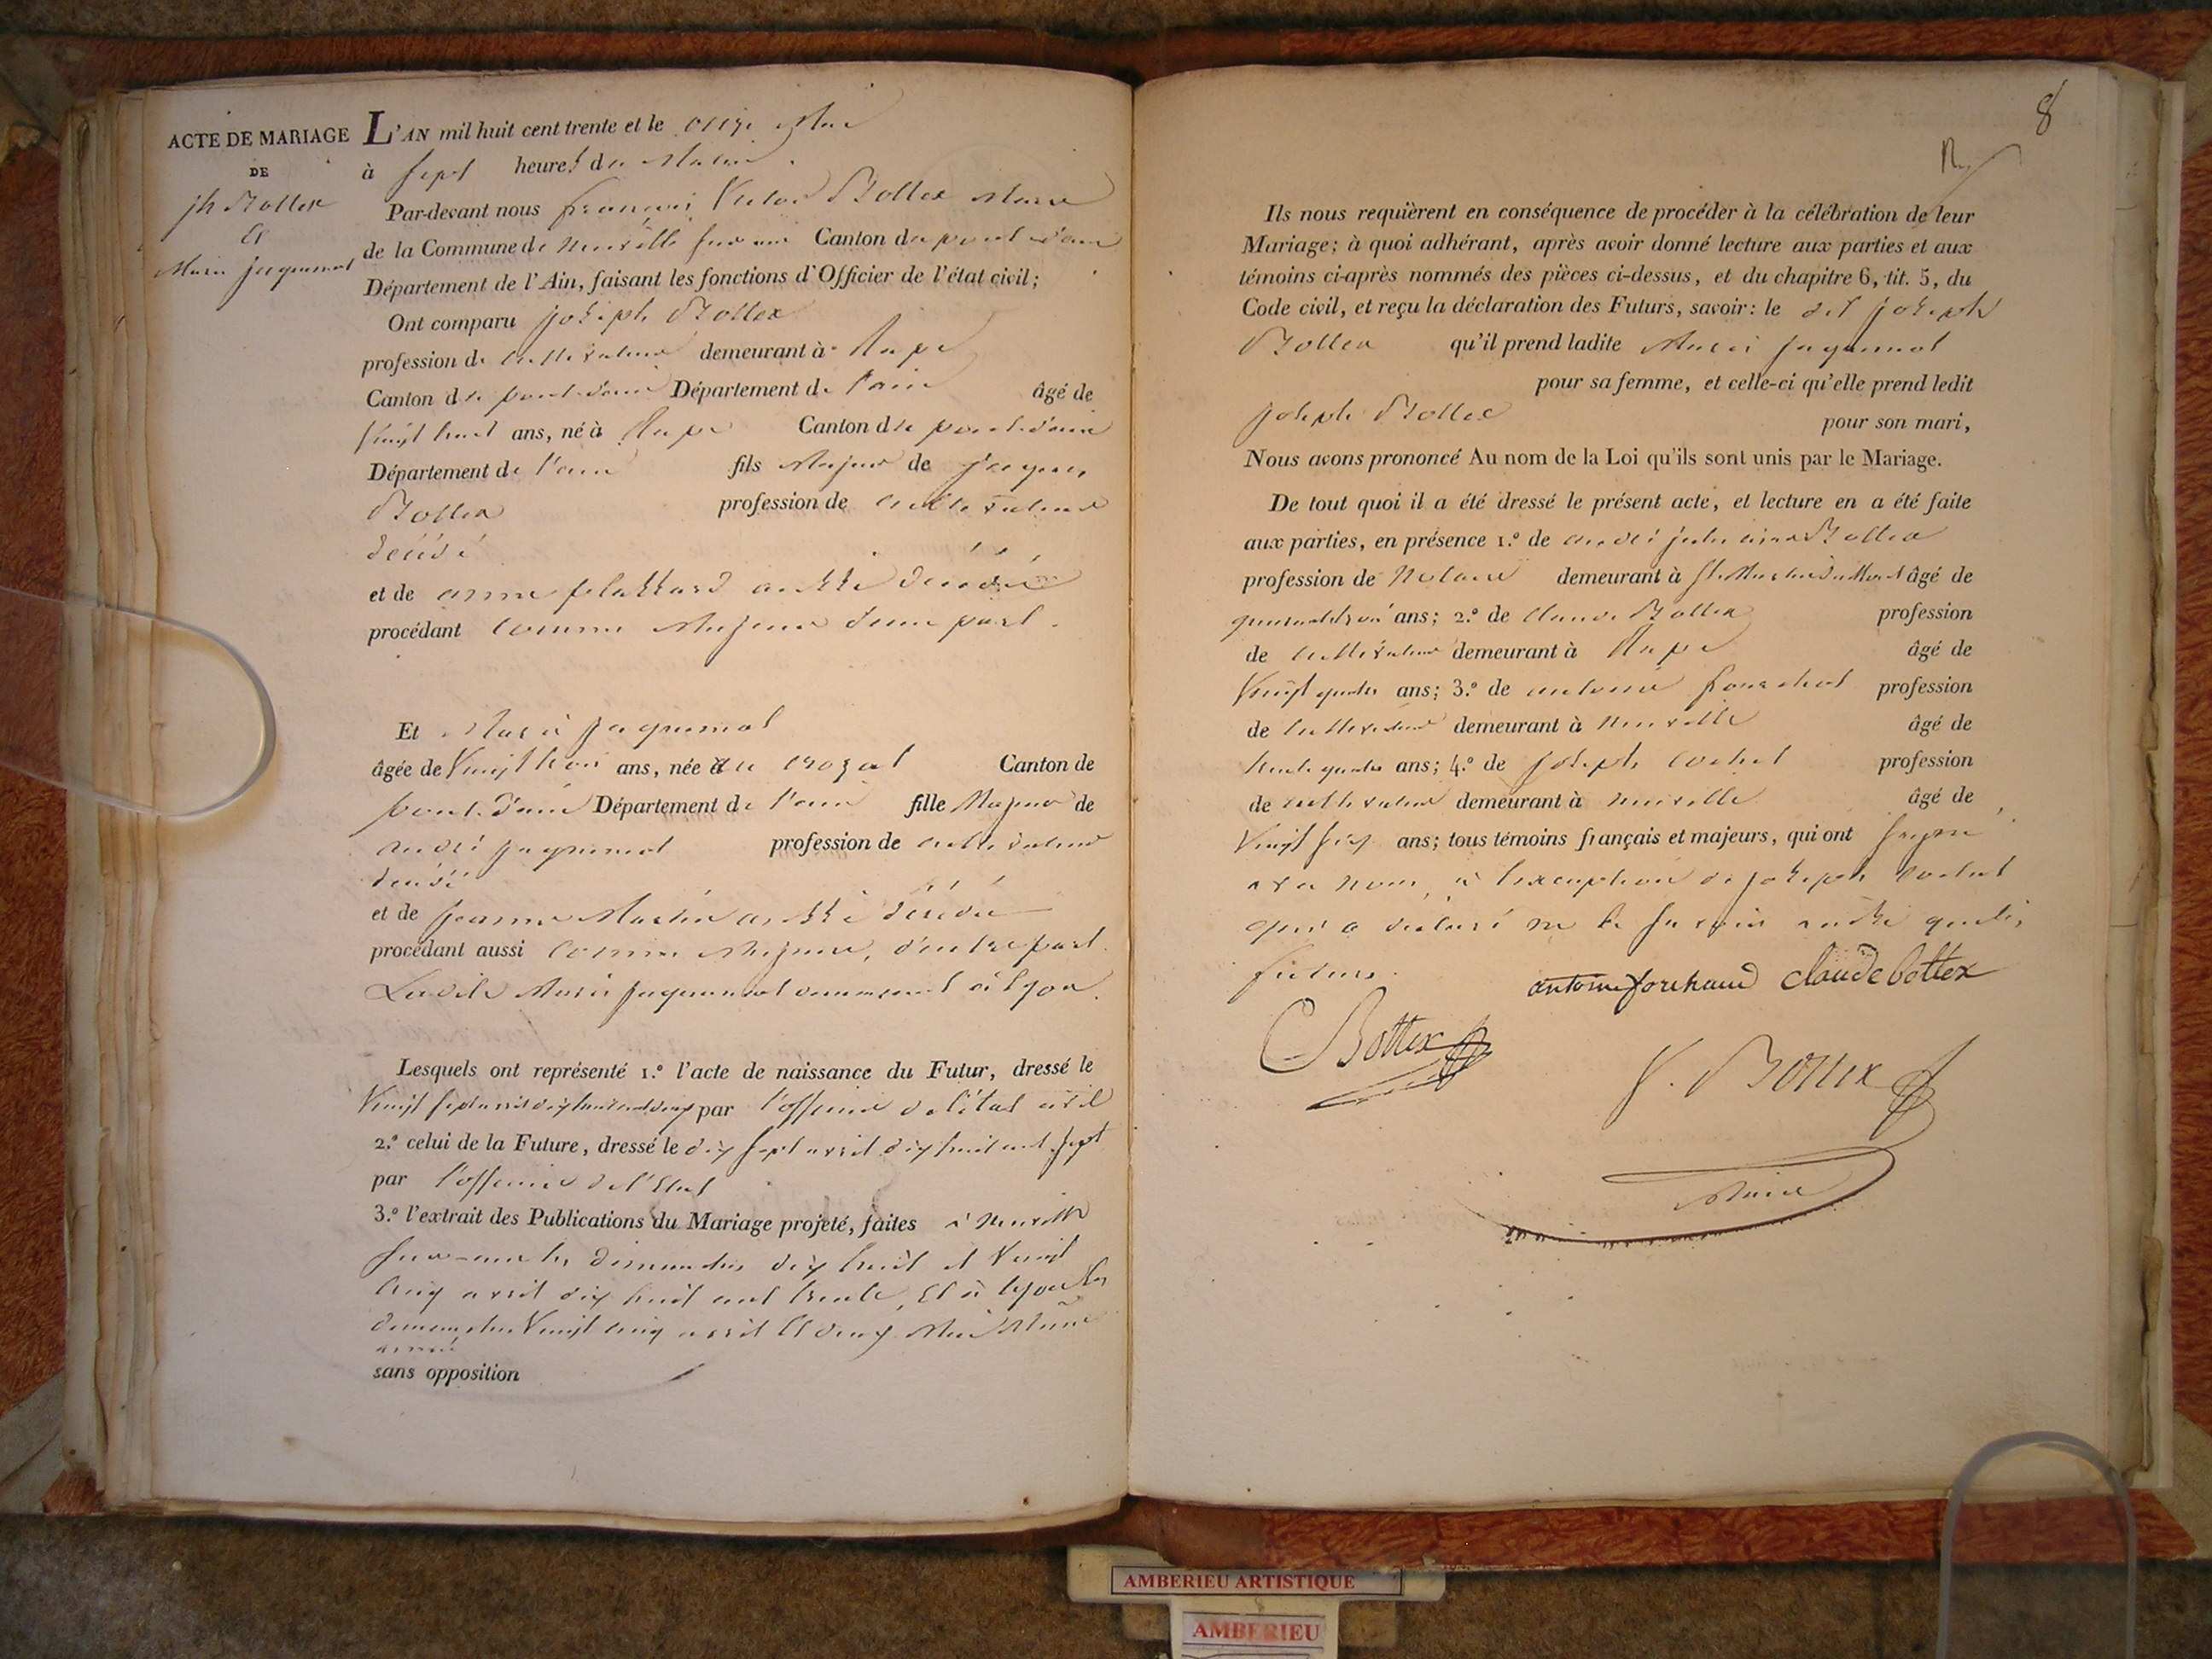 ACTE DE MARIAGE
DE
jh Bottex
Et
Marie jaquemot
L'AN mil huit cent trente et le onze Mai
à sept heures du Matin
Par-devant nous françois Victor Bottex Maire
de la Commune de neuville sur ain Canton de pont d'ain
Département de l'Ain, faisant les fonctions d'Officier de l'état civil;
Ont comparu joseph Bottex
profession de cultivateur demeurant à
Canton de pont-d'ain Département de l'ain âgé de
Vingt huit ans, né à Canton de pont-d'ain
Département de l'ain fils Majeur de jacques
Bottex profession de cultivateur
décédé
et de anne plattard aussi décédée
procédant comme Majeur d'une part.
Et Marie jaquemot
âgée de Vingt trois ans, née au Canton de
pont-d'ain Département de l'ain fille Majeure de
andré jaquemot profession de cultivateur
décédé
et de jeanne Martin aussi décédée
procédant aussi comme Majeure, d'autre part.
Ladite Marie jaquemot demeurant à Lyon.
Lesquels ont représenté 1.º l'acte de naissance du Futur, dressé le
Vingt sept avril dix huit cent deux par l'officier de l'état civil
2.º celui de la Future, dressé le dix sept avril dix huit cent sept
par l'officier de l'Etat
3.º l'extrait des Publications du Mariage projeté, faites à neuville
sur-ain les dimanches dix huit et Vingt
cinq avril dix huit cent trente, Et à lyon les
dimanches Vingt cinq avril Et deux Mai Même
année
sans opposition
8
Ils nous requièrent en conséquence de procéder à la célébration de leur
Mariage; à quoi adhérant, après avoir donné lecture aux parties et aux
témoins ci-après nommés des pièces ci-dessus, et du chapitre 6, tit. 5, du
Code civil, et reçu la déclaration des Futurs, savoir: le dit joseph
Bottex qu'il prend ladite Marie jaquemot
pour sa femme, et celle-ci qu'elle prend ledit
joseph Bottex pour son mari,
Nous avons prononcé Au nom de la Loi qu'ils sont unis par le Mariage.
De tout quoi il a été dressé le présent acte, et lecture en a été faite
aux parties, en présence 1.º de Bottex
profession de Notaire demeurant à St Martin du Mont âgé de
ans; 2.º de claude Bottex profession
de cultivateur demeurant à âgé de
Vingt quatre ans; 3.º de antoine profession
de cultivateur demeurant à neuville âgé de
trente quatre ans; 4.º de joseph cochet profession
de cultivateur demeurant à neuville âgé de
Vingt six ans; tous témoins français et majeurs, qui ont signé
avec nous, à l'exception de joseph cochet
qui a déclaré ne le savoir ainsi que les
futurs.
antoine claude bottex
Bottex
V. Bottex
Maire
AMBERIEU ARTISTIQUE
AMBERIEU